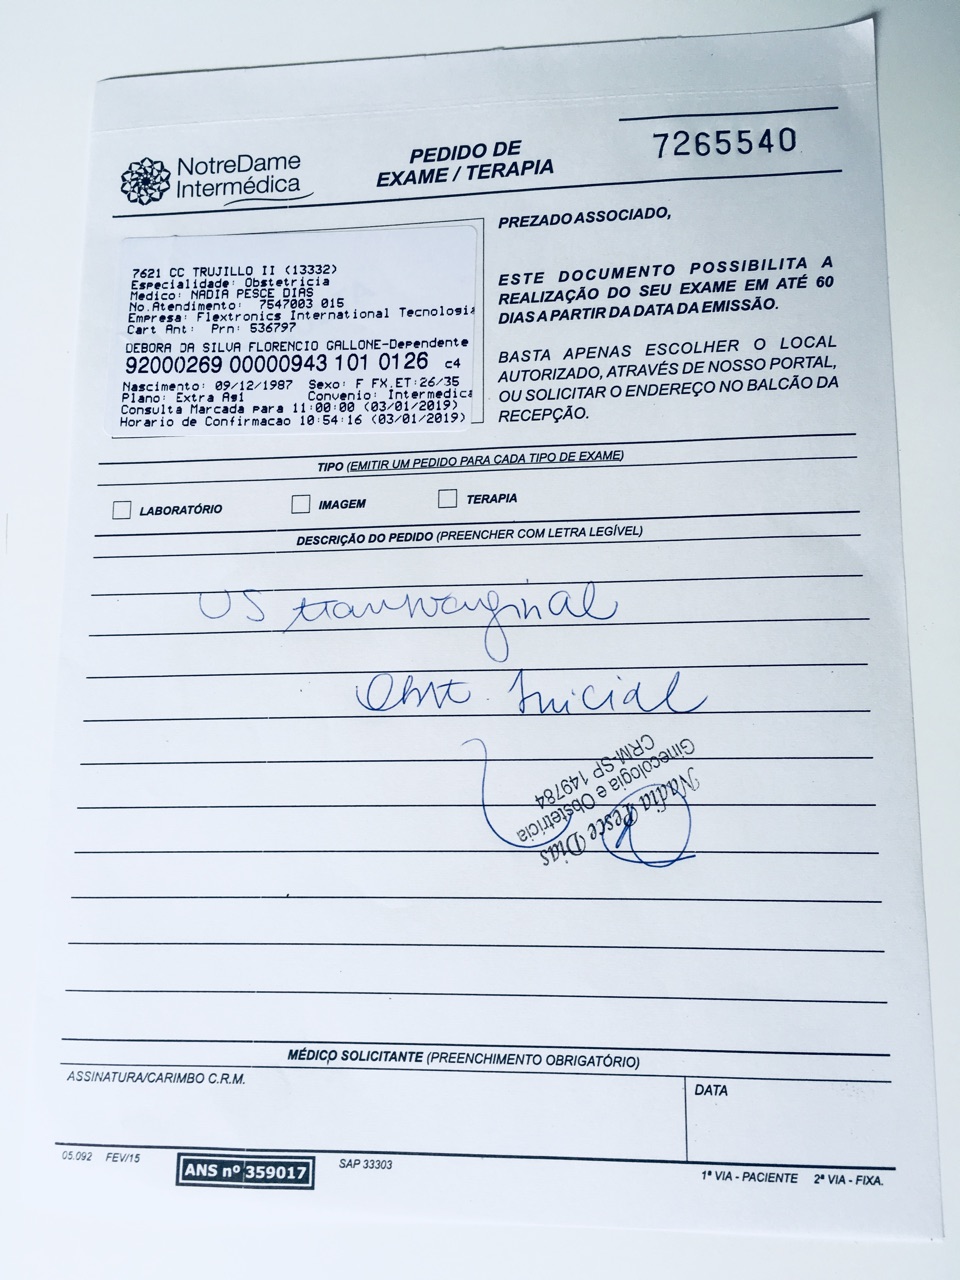 NotreDame
Intermédica
PEDIDO DE
EXAME / TERAPIA
7265540
7621 CC TRUJILLO II (13332)
Especialidade: Obstetricia
Medico: NADIA PESCE DIAS
No.Atendimento: 7547003 015
Empresa: Flextronics International Tecnologia
Cart Ant: Prn: 536797
DEBORA DA SILVA FLORENCIO GALLONE-Dependente
92000269 00000943 101 0126 c4
Nascimento: 09/12/1987 Sexo: F FX.ET:26/35
Plano: Extra Ag1 Convenio: Intermedica
Consulta Marcada para 11:00:00 (03/01/2019)
Horario de Confirmacao 10:54:16 (03/01/2019)
PREZADO ASSOCIADO,
ESTE DOCUMENTO POSSIBILITA A
REALIZAÇÃO DO SEU EXAME EM ATÉ 60
DIAS A PARTIR DA DATA DA EMISSÃO.
BASTA APENAS ESCOLHER O LOCAL
AUTORIZADO, ATRAVÉS DE NOSSO PORTAL,
OU SOLICITAR O ENDEREÇO NO BALCÃO DA
RECEPÇÃO.
TIPO (EMITIR UM PEDIDO PARA CADA TIPO DE EXAME)
LABORATÓRIO IMAGEM TERAPIA
DESCRIÇÃO DO PEDIDO (PREENCHER COM LETRA LEGÍVEL)
US transvaginal
Obst. Inicial
Nadia Pesce Dias
Ginecologia e Obstetrícia
CRM-SP 149784
MÉDICO SOLICITANTE (PREENCHIMENTO OBRIGATÓRIO)
ASSINATURA/CARIMBO C.R.M.
DATA
05.092 FEV/15
ANS nº 359017
SAP 33303
1ª VIA - PACIENTE 2ª VIA - FIXA.